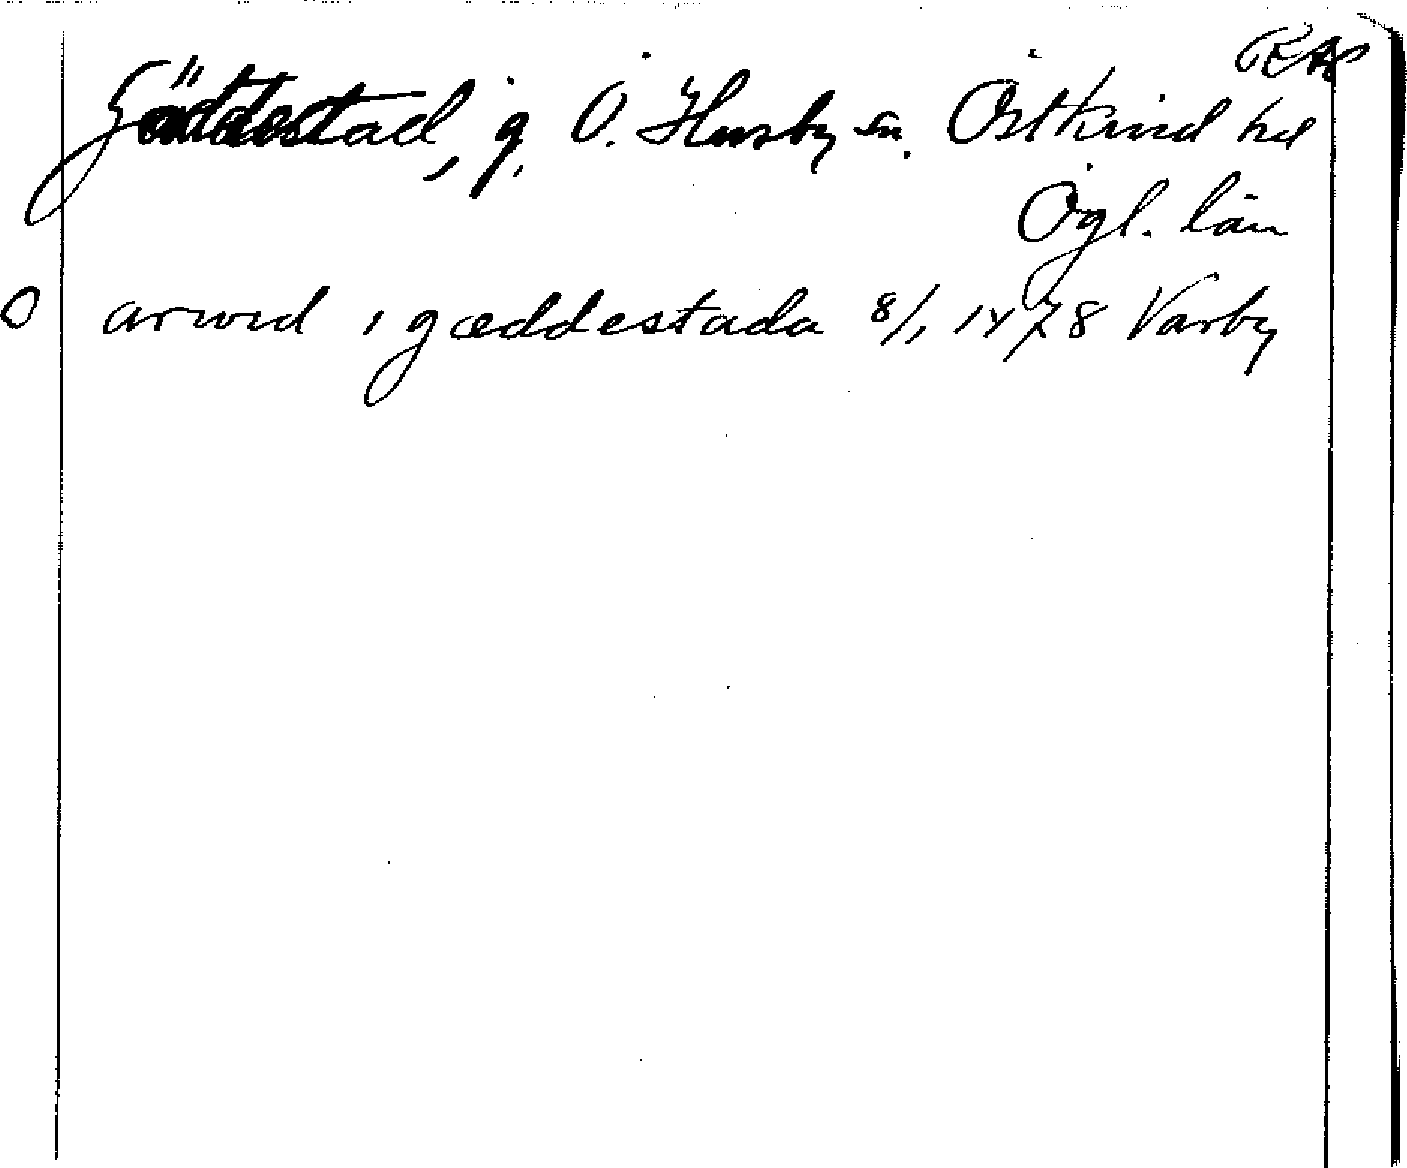 RAP
Gäddestad, g, Ö. Husby sn. Östkind hd
Ögl. län
O arwid i gæddestada 8/1 1478 Varby